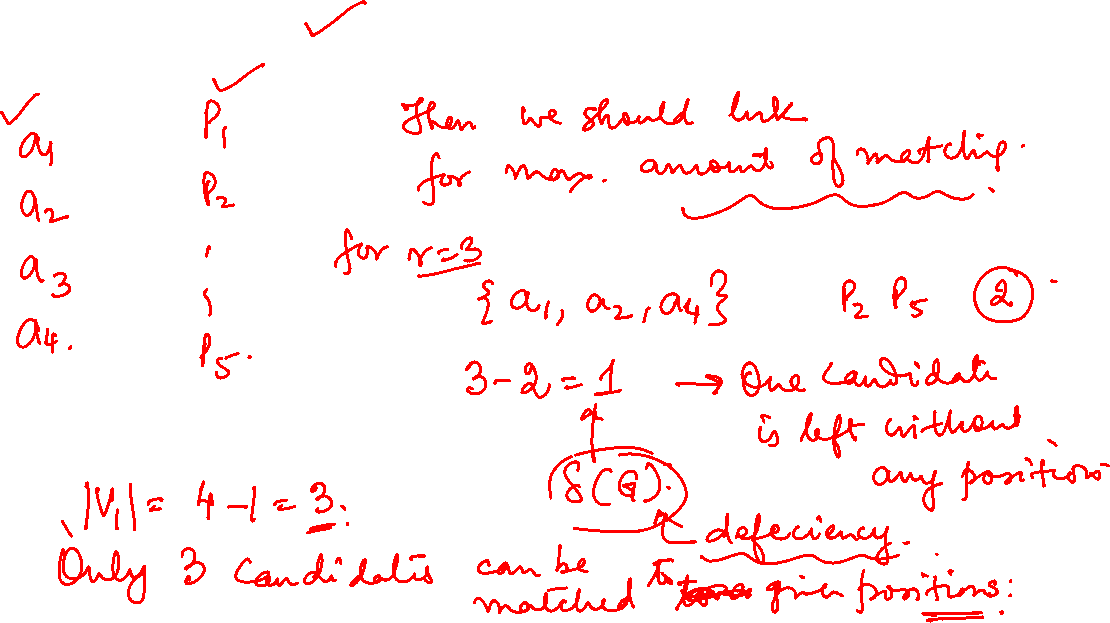 a1 P1 Then we should look
a2 P2 for max. amount of matching.
a3 for r=3
a4. P5. {a1, a2, a4} P2 P5 2
3-2=1 → One candidate
is left without
any positions
|V1| = 4-1=3. δ(G).
defeciency.
Only 3 candidates can be
matched to given positions: